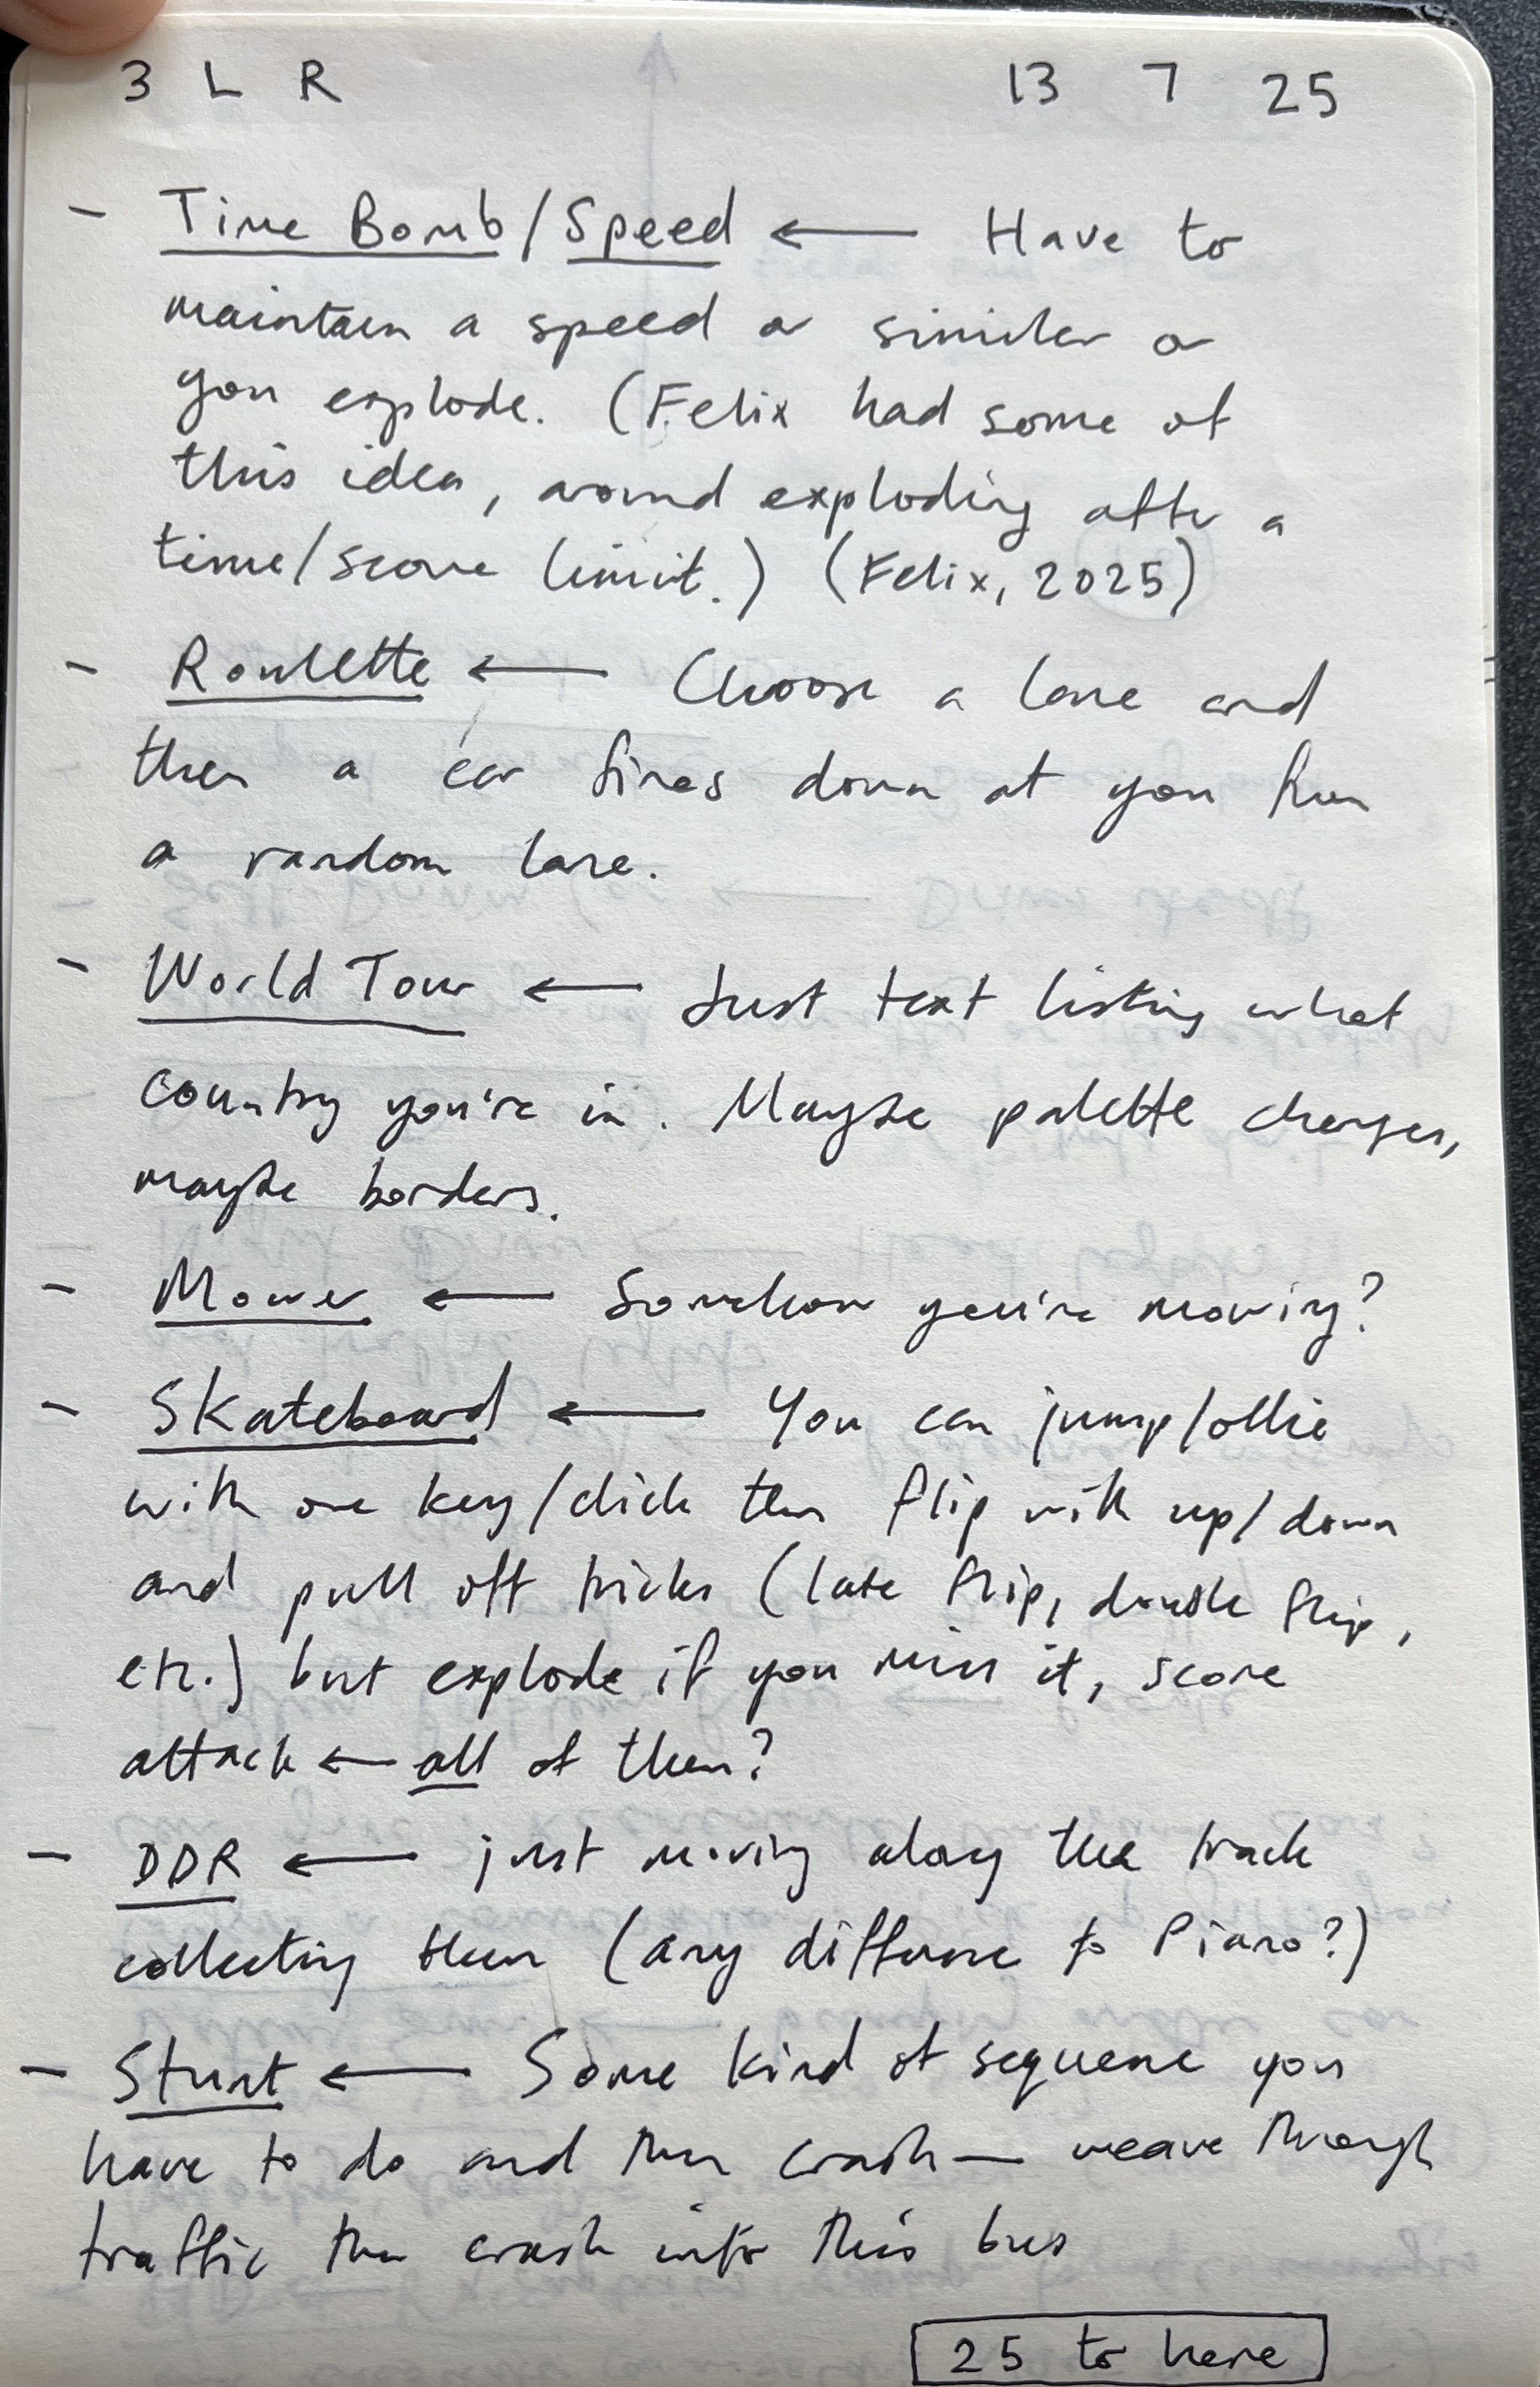 3 L R 13 7 25
- Time Bomb/Speed ← Have to
maintain a speed or similar or
you explode. (Felix had some of
this idea, around exploding after a
time/score limit.) (Felix, 2025)
- Roulette ← Choose a lane and
then a car fires down at you from
a random lane.
- World Tour ← Just text listing what
country you're in. Maybe palette changes,
maybe borders.
- Mower ← Somehow you're mowing?
- Skateboard ← You can jump/ollie
with one key/click then flip with up/down
and pull off tricks (late flip, double flip,
etc.) but explode if you miss it, score
attack ← all of them?
- DDR ← just moving along the track
collecting them (any difference to Piano?)
- Stunt ← Some kind of sequence you
have to do and then crash — weave through
traffic then crash into this bus
25 to here